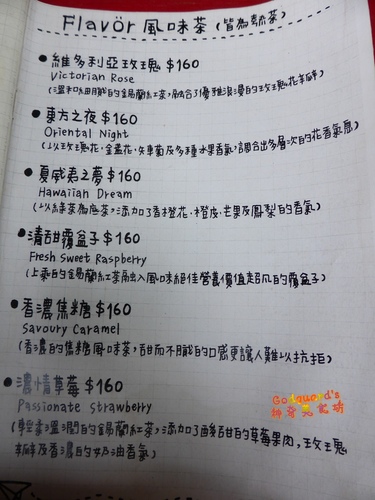 Flavör 風味茶 (皆為熱茶)
維多利亞玫瑰 $160
Victorian Rose
(溫和細膩的錫蘭紅茶,融合了優雅浪漫的玫瑰花瓣)
東方之夜 $160
Oriental Night
(以玫瑰花、金盞花、矢車菊及多種水果香氣,調合出多層次的花香氣息)
夏威夷之夢 $160
Hawaiian Dream
(以綠茶為底茶,添加了香橙花、橙皮、芒果及鳳梨的香氣)
清甜覆盆子 $160
Fresh Sweet Raspberry
(上乘的錫蘭紅茶融入風味絕佳營養價值超凡的覆盆子)
香濃焦糖 $160
Savoury Caramel
(香濃的焦糖風味茶,甜而不膩的口感更讓人難以抗拒)
濃情草莓 $160
Passionate Strawberry
(輕柔溫潤的錫蘭紅茶,添加了酸甜的草莓果肉,玫瑰
花瓣及香濃的奶油香氣)